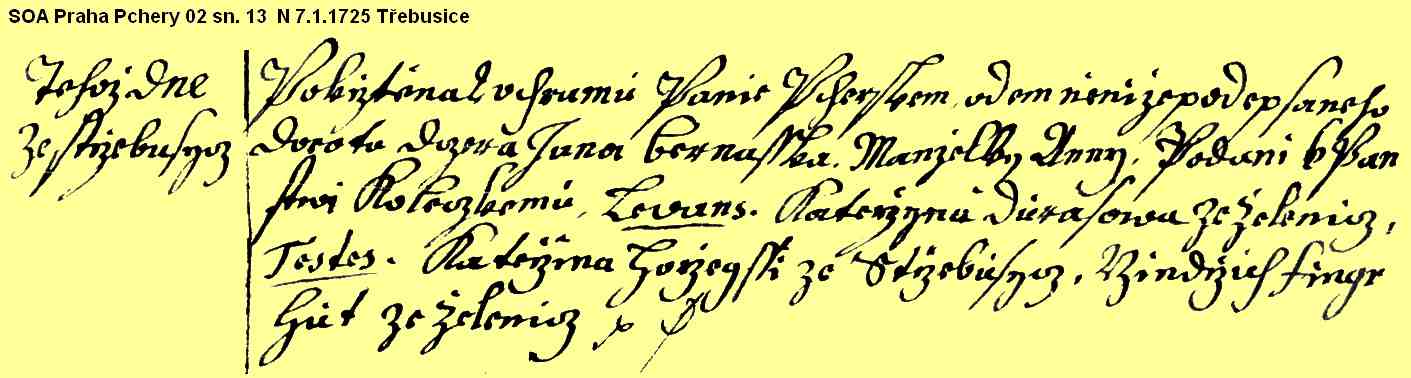 SOA Praha Pchery 02 sn. 13 N 7.1.1725 Třebusice
Tehoz dne
ze Strzebusycz
Pokrztěna v chramu Panie Pcherskem, odemne nize podepsaneho
Dorota dcera Jana bernasska. Manzelky Anny. Podani k Pan
stwi Koleczkemu, Levans. Katerzyna durasowa ze Zelenicz,
Testes. Katerzina horzegssi ze Strzebusycz, Jindrzich fingr
hut ze Zelenicz